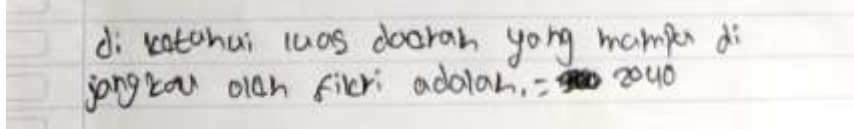 di ketahui luas daerah yang mampu di
jangkau oleh fikri adalah. = 2040